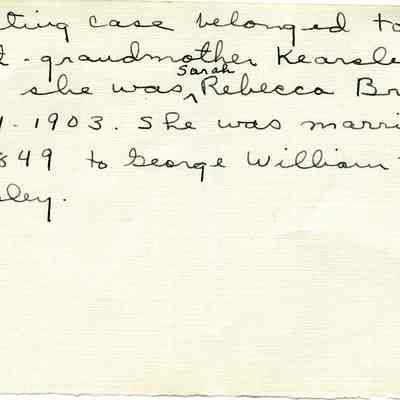 ting case belonged to
t - grandmother Kearsle
she was Sarah Rebecca Br
1903. She was marri
849 to George William
ley.